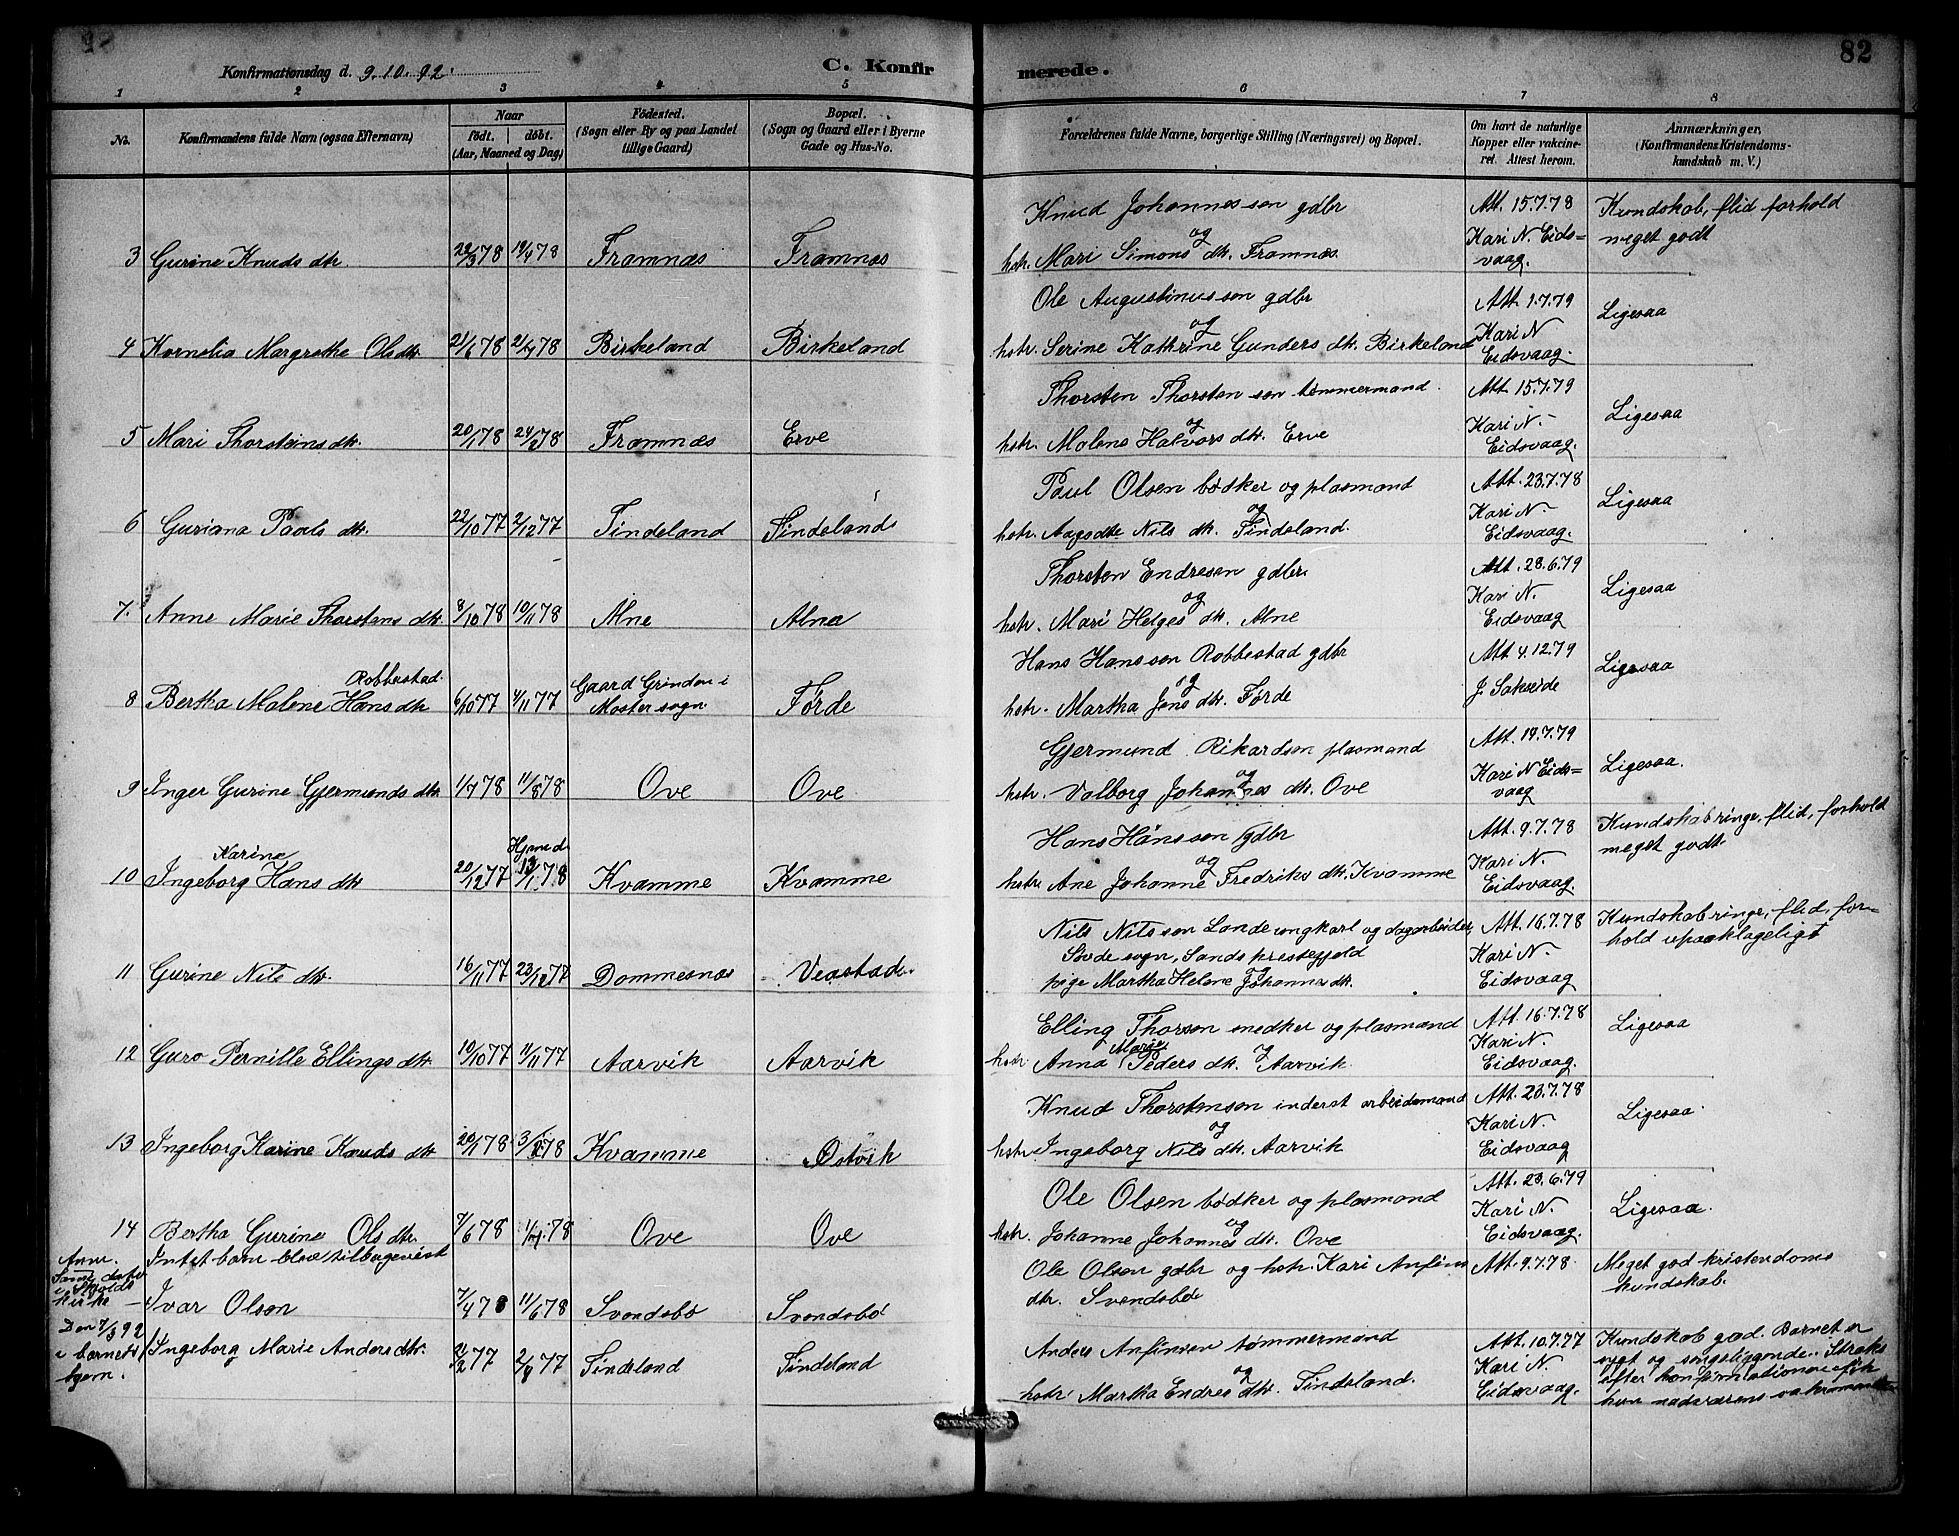 82
Konfirmationsdag d. 9.10.92.
C. Konfirmerede.
1 2 3 4 5 6 7 8
No.
Konfirmandens fulde Navn (ogsaa Efternavn)
Naar
født. døbt.
(Aar, Maaned og Dag)
Fødested.
(Sogn eller By og paa Landet
tillige Gaard)
Bopæl.
(Sogn og Gaard eller i Byerne
Gade og Hus-No.
Forældrenes fulde Navne, borgerlige Stilling (Næringsvei) og Bopæl.
Om havt de naturlige
Kopper eller vakcine-
ret. Attest herom.
Anmærkninger,
(Konfirmandens Kristendoms-
kundskab m. V.)
Knud Johannessen gdbr Att. 15.7.78 Kundskab, flid forhold
og Kari N. Eids= meget godt
3 Gurine Knuds dtr. 22/3 78 19/4 78 Framnæs Framnæs hstr. Mari Simons dtr. Framnæs. vaag.
Ole Augustinussen gdbr Att. 1.7.79 Ligesaa
og Kari N
4 Kornelia Margrethe Ols dtr. 21/6 78 21/7 78 Birkeland Birkeland hstr. Serine Kathrine Gunders dtr. Birkeland Eidsvaag.
Thorsten Thorstensen tømmermand Att. 15.7.79 Ligesaa
og Kari N.
5 Mari Thorsteins dtr. 20/1 78 24/2 78 Framnæs Erve hstr. Molene Halvors dtr. Erve Eidsvaag.
Paul Olsen bødker og plasmand Att. 23.7.78 Ligesaa
og Kari N.
6 Guriana Pauls dtr. 22/10 77 2/12 77 Tindeland Tindeland hstr. Aagodte Nils dtr. Tindeland. Eidsvaag.
Thorsten Endresen gdbr. Att. 28.6.79 Ligesaa
og Kari N.
7. Anne Marie Thorstens dtr. 8/10 78 10/11 78 Alne Alne hstr. Mari Helges dtr. Alne Eidsvaag
Hans Hanssen Robbestad gdbr Att 4.12.79 Ligesaa
Robbestad Gaard Grinden i og
8 Bertha Malene Hans dtr 6/10 77 4/11 77 Mostersogn Førde hstr. Martha Jens dtr. Førde J. Sakeide
Gjermund Rikardsen plasmand Att. 14.7.79 Ligesaa.
og Kari N Eids=
9 Inger Gurine Gjermunds dtr 1/7 78 11/8 78 Ove Ove hstr. Valborg Johannes dtr. Ove vaag
Hans Hanssen gdbr Att. 9.7.78 Kundskab ringe, flid, forhold
Karine Hjemd og Kari N. meget godt
10 Ingeborg Hans dtr 20/12 77 13/1 78 Kvamme Kvamme hstr Ane Johanne Fredriks dtr. Kvamme Eidsvaag.
Nils Nilssen Lande ungkarl og dagarbeider, Att. 16.7.78 Kundskab ringe, flid, for-
Søvde sogn, Sands prestegjeld Kari N. hold upaaklageligt
og
11 Gurine Nils dtr. 16/11 77 23/12 77 Dommesnæs Veastad. pige Martha Helene Johannes dtr. Eidsvaag
Elling Thorsen snedker og plasmand Att. 16.7.78 Ligesaa
Marie Kari N.
12 Guro Pernille Ellings dtr 10/10 77 11/11 77 Aarvik Aarvik hstr. Anna Peders dtr. og Aarvik Eidsvaag.
Knud Thorstensen inderst arbeidsmand Att. 23.7.78 Ligesaa.
og Kari N.
13 Ingeborg Karine Knuds dtr 20/1 78 3/2 78 Kvamme Østvik hstr Ingeborg Nils dtr. Aarvik Eidsvaag
Ole Olsen bødker og plasmand Att. 23.6.79 Ligesaa.
og Kari N.
14 Bertha Gurine Ols dtr. 7/6 78 78 Ove Ove hstr. Johanne Johannes dtr. Ove Eidsvaag.
Anm. Intet barn blev tilbagevist
Samme dato i Skjolds kirke – Ivar Olsen 7/4 78 11/6 78 Svendsbø Svendsbø Ole Olsen gdbr og hstr. Kari Anfins dtr. Svendsbø Att. 9.7.78 Meget god kristendoms kundskab.
Den 7/3 92 i barnets hjem.
Ingeborg Marie Anders dtr. 21/2 77 77 Tindeland Tindeland
Anders Anfinsen tømmermand Att. 10.7.77 Kundskab god. Barnet er
og Kari N. sygt og sengeliggende. Straks
hstr. Martha Endres dtr. Tindeland. Eidsvaag. efter konfirmationen fik
hun nadverens sakramente